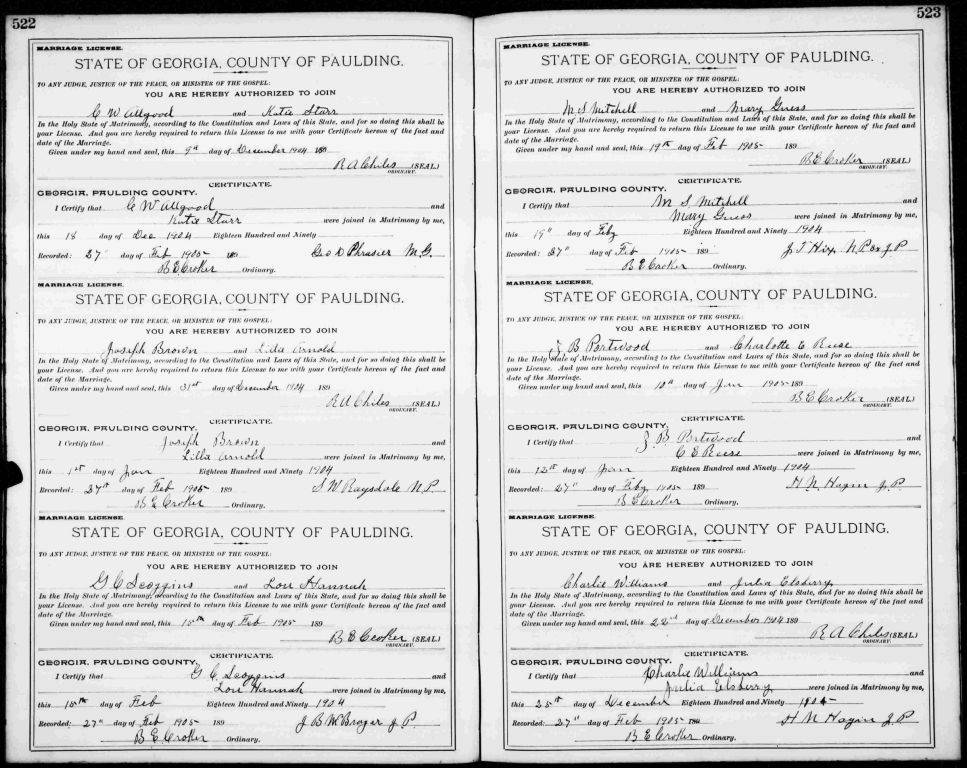 522
MARRIAGE LICENSE.
STATE OF GEORGIA, COUNTY OF PAULDING.
TO ANY JUDGE, JUSTICE OF THE PEACE, OR MINISTER OF THE GOSPEL:
YOU ARE HEREBY AUTHORIZED TO JOIN
C W Allgood and Katie Starr
In the Holy State of Matrimony, according to the Constitution and Laws of this State, and for so doing this shall be
your License. And you are hereby required to return this License to me with your Certificate hereon of the fact and
date of the Marriage.
Given under my hand and seal, this 9th day of December 1904 189
R A Chiles (SEAL)
ORDINARY.
CERTIFICATE.
GEORGIA, PAULDING COUNTY.
I Certify that C W Allgood and
Katie Starr were joined in Matrimony by me,
this 18 day of Dec 1904 Eighteen Hundred and Ninety
Recorded: 27 day of Feb 1905 189 Geo D Phrasier M.G.
B E Croker Ordinary.
MARRIAGE LICENSE.
STATE OF GEORGIA, COUNTY OF PAULDING.
TO ANY JUDGE, JUSTICE OF THE PEACE, OR MINISTER OF THE GOSPEL:
YOU ARE HEREBY AUTHORIZED TO JOIN
Joseph Brown and Lilla Arnold
In the Holy State of Matrimony, according to the Constitution and Laws of this State, and for so doing this shall be
your License. And you are hereby required to return this License to me with your Certificate hereon of the fact and
date of the Marriage.
Given under my hand and seal, this 31st day of December 1904 189
R A Chiles (SEAL)
ORDINARY.
CERTIFICATE.
GEORGIA, PAULDING COUNTY.
I Certify that Joseph Brown and
Lilla Arnold were joined in Matrimony by me,
this 1st day of Jan Eighteen Hundred and Ninety 1904
Recorded: 27th day of Feb 1905 189 S W Ragsdale N.P.
B E Croker Ordinary.
MARRIAGE LICENSE.
STATE OF GEORGIA, COUNTY OF PAULDING.
TO ANY JUDGE, JUSTICE OF THE PEACE, OR MINISTER OF THE GOSPEL:
YOU ARE HEREBY AUTHORIZED TO JOIN
G C Scoggins and Lou Hannah
In the Holy State of Matrimony, according to the Constitution and Laws of this State, and for so doing this shall be
your License. And you are hereby required to return this License to me with your Certificate hereon of the fact and
date of the Marriage.
Given under my hand and seal, this 15th day of Feb 1905 189
B E Croker (SEAL)
ORDINARY.
CERTIFICATE.
GEORGIA, PAULDING COUNTY.
I Certify that G C Scoggins and
Lou Hannah were joined in Matrimony by me,
this 15th day of Feb Eighteen Hundred and Ninety 1904
Recorded: 27th day of Feb 1905 189 J B W J P.
B E Croker Ordinary.
523
MARRIAGE LICENSE.
STATE OF GEORGIA, COUNTY OF PAULDING.
TO ANY JUDGE, JUSTICE OF THE PEACE, OR MINISTER OF THE GOSPEL:
YOU ARE HEREBY AUTHORIZED TO JOIN
M S Mitchell and Mary Guess
In the Holy State of Matrimony, according to the Constitution and Laws of this State, and for so doing this shall be
your License. And you are hereby required to return this License to me with your Certificate hereon of the fact and
date of the Marriage.
Given under my hand and seal, this 19th day of Feb 1905 189
B E Croker (SEAL)
ORDINARY.
CERTIFICATE.
GEORGIA, PAULDING COUNTY.
I Certify that M S Mitchell and
Mary Guess were joined in Matrimony by me,
this 19th day of Feby Eighteen Hundred and Ninety 1904
Recorded: 27th day of Feb 1905 189 J T Hix N.P. Ex J.P
B E Croker Ordinary.
MARRIAGE LICENSE.
STATE OF GEORGIA, COUNTY OF PAULDING.
TO ANY JUDGE, JUSTICE OF THE PEACE, OR MINISTER OF THE GOSPEL:
YOU ARE HEREBY AUTHORIZED TO JOIN
J B Portwood and Charlotte E Reese
In the Holy State of Matrimony, according to the Constitution and Laws of this State, and for so doing this shall be
your License. And you are hereby required to return this License to me with your Certificate hereon of the fact and
date of the Marriage.
Given under my hand and seal, this 10th day of Jan 1905 189
B E Croker (SEAL)
ORDINARY.
CERTIFICATE.
GEORGIA, PAULDING COUNTY.
I Certify that J. B. Portwood and
C E Reese were joined in Matrimony by me,
this 12th day of Jan Eighteen Hundred and Ninety 1904
Recorded: 27th day of Feby 1905 189 H N Hagin J.P.
B E Croker Ordinary.
MARRIAGE LICENSE.
STATE OF GEORGIA, COUNTY OF PAULDING.
TO ANY JUDGE, JUSTICE OF THE PEACE, OR MINISTER OF THE GOSPEL:
YOU ARE HEREBY AUTHORIZED TO JOIN
Charlie Williams and Julia Elsberry
In the Holy State of Matrimony, according to the Constitution and Laws of this State, and for so doing this shall be
your License. And you are hereby required to return this License to me with your Certificate hereon of the fact and
date of the Marriage.
Given under my hand and seal, this 22nd day of December 1904 189
R A Chiles (SEAL)
ORDINARY.
CERTIFICATE.
GEORGIA, PAULDING COUNTY.
I Certify that Charlie Williams and
Julia Elsberry were joined in Matrimony by me,
this 25th day of December Eighteen Hundred and Ninety 1904
Recorded: 27th day of Feb 1905 H N Hagin J P
B E Croker Ordinary.